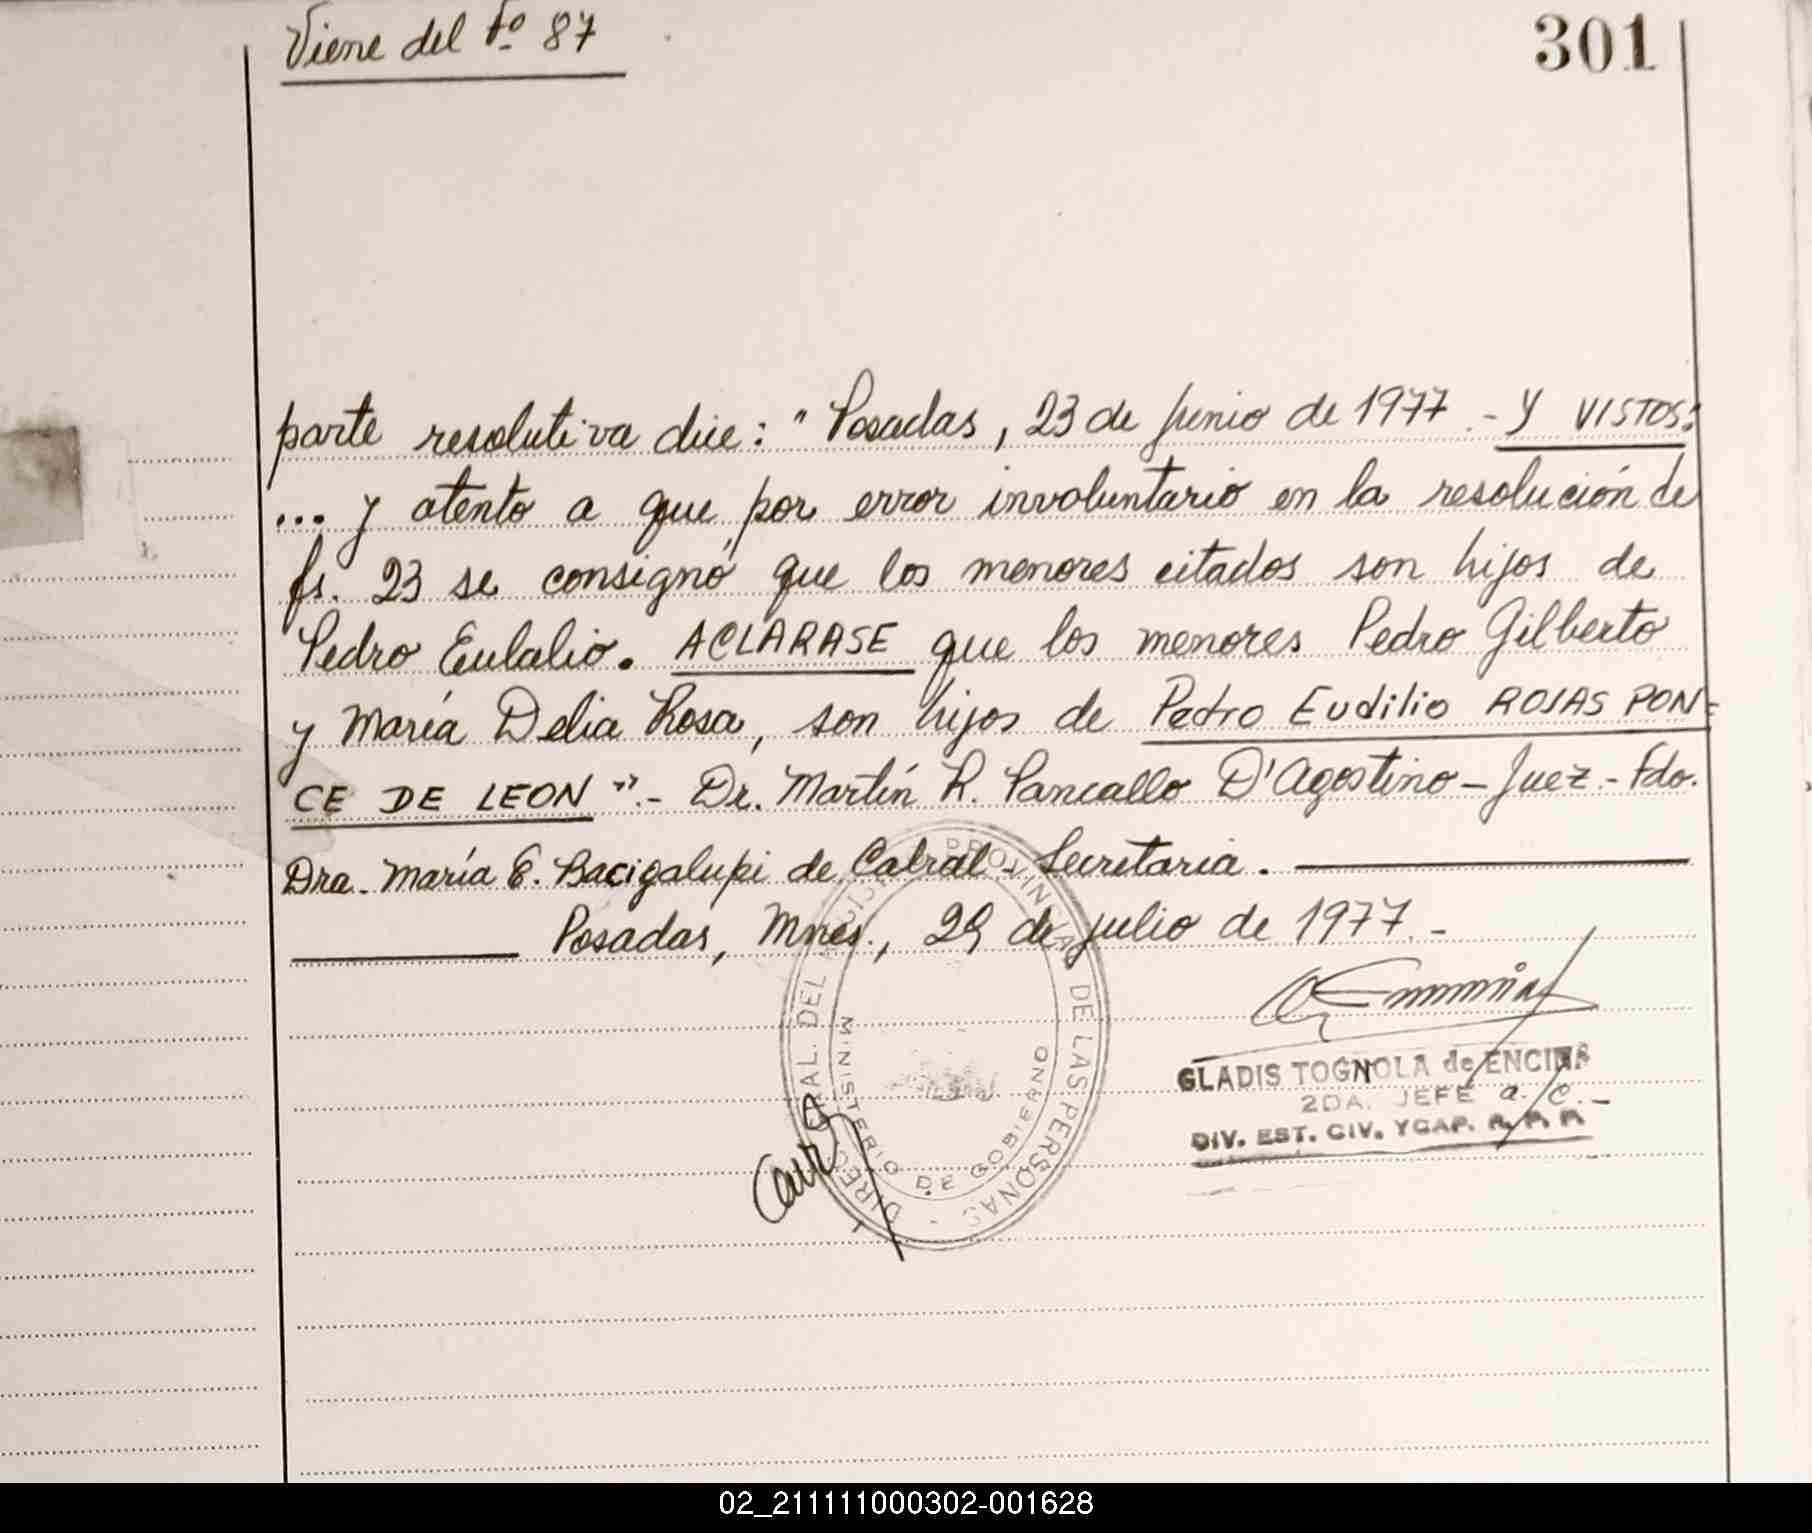 Viene del fº 87
301
parte resolutiva dice: "Posadas, 23 de junio de 1977.- Y VISTOS:
... y atento a que, por error involuntario en la resolución de
fs. 23 se consignó que los menores citados son hijos de
Pedro Eulalio. ACLARASE que los menores Pedro Gilberto
y María Delia Rosa, son hijos de Pedro Eudilio ROJAS PON=
CE DE LEON".- Dr. Martín R. Pancallo D'Agostino - Juez.- Fdo.
Dra. María E. Bacigalupi de Cabral - Secretaria.
Posadas, Mnes., 29 de julio de 1977.-
GLADIS TOGNOLA de ENCINA
2DA. JEFE a/c.-
DIV. EST. CIV. Y CAP. R. P. P.
PROVINCIAL DE LAS PERSONAS
MINISTERIO DE GOBIERNO
02_211111000302-001628